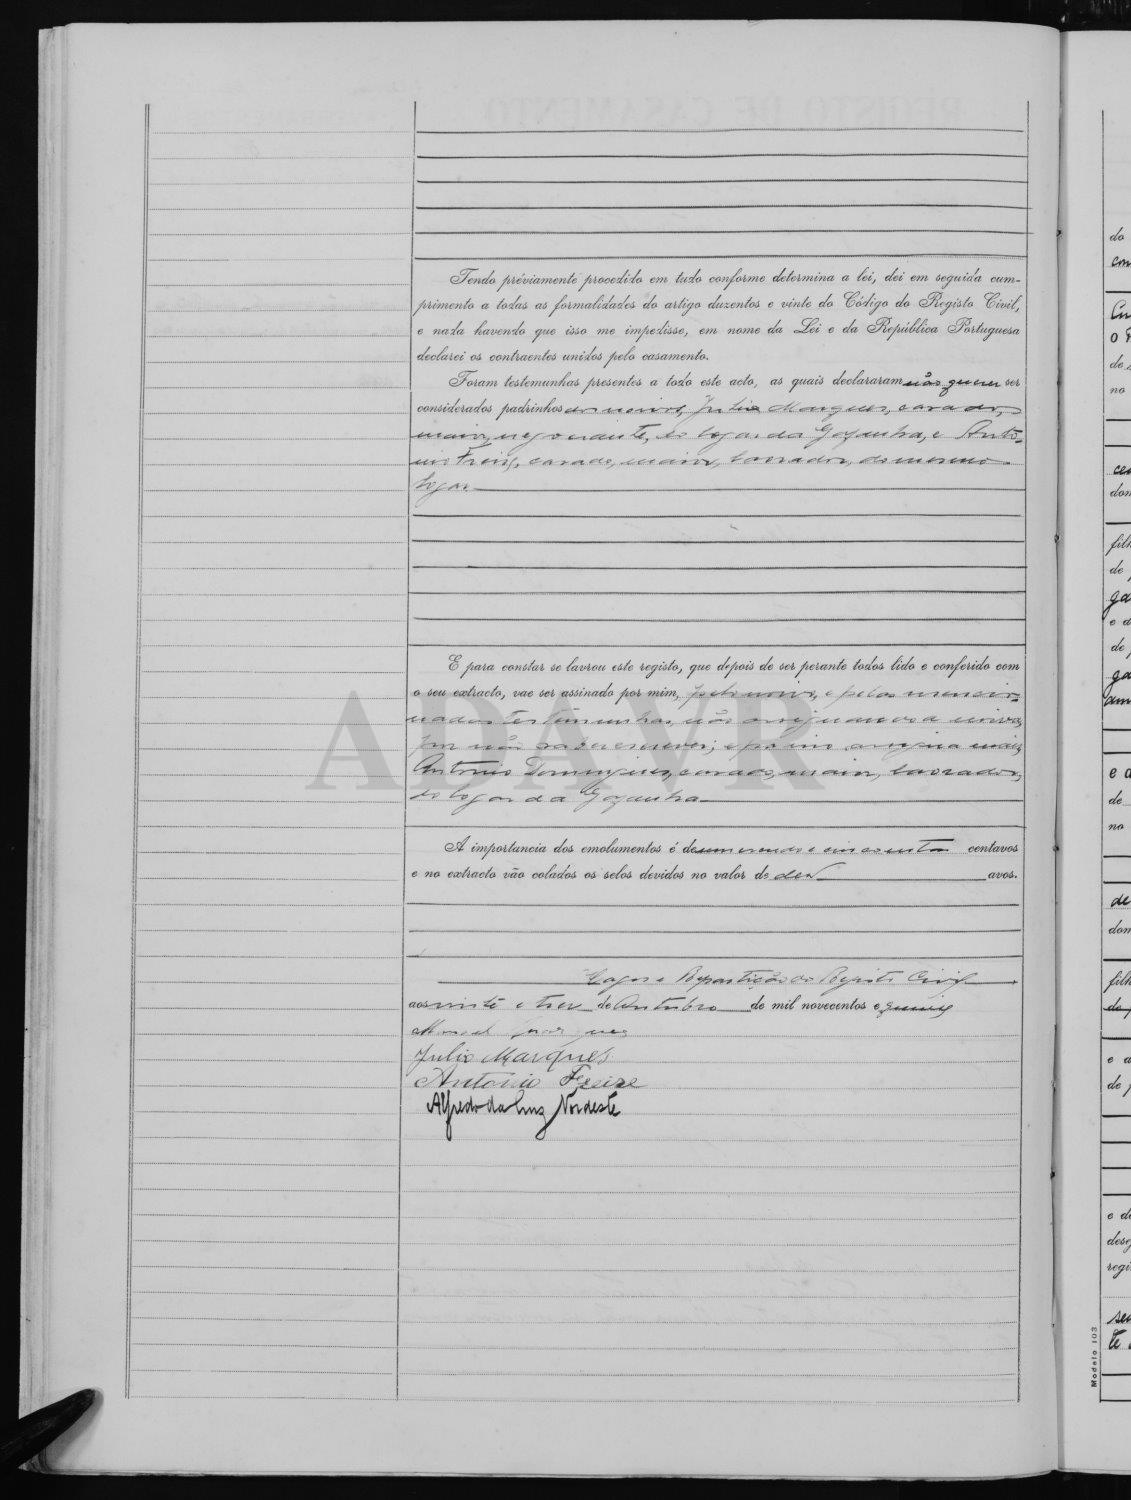 Tendo préviamente procedido em tudo conforme determina a lei, dei em seguida cum-
primento a todas as formalidades do artigo duzentos e vinte do Código do Registo Civil,
e nada havendo que isso me impedisse, em nome da Lei e da República Portuguesa
declarei os contraentes unidos pelo casamento.
Foram testemunhas presentes a todo este acto, as quais declararam não querer ser
considerados padrinhos dos noivos, Julio Marques, casado,
maior, negociante, do logar da Gafanha, e Anto-
nio Freire, casado, maior, lavrador, do mesmo
logar.
E para constar se lavrou este registo, que depois de ser perante todos lido e conferido com
o seu extracto, vae ser assinado por mim, pelo noivo, e pelas mencio-
nadas testemunhas, não assignando a noiva,
por não saber escrever;
Antonio Domingues, casado, maior, lavrador,
do logar da Gafanha
A importancia dos emolumentos é de um escudo e cincoenta centavos
e no extracto vão colados os selos devidos no valor de dez avos.
Repartição do Registo Civil
aos vinte e tres de Outubro de mil novecentos e quinze
Manoel
Julio Marques
António Freire
Alfredo da Cruz Nordeste
ADAVR
do
de
no
filh
de
e d
de
e d
de
no
de
dom
filh
e d
de
Modelo 103